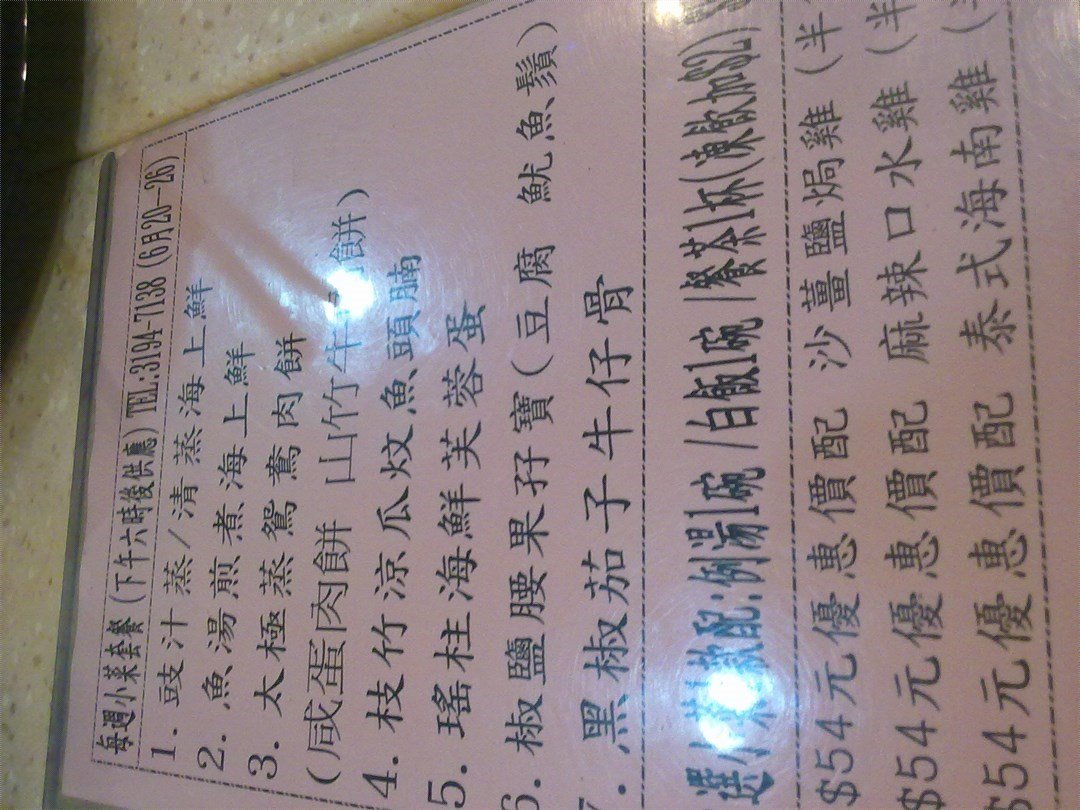 每週小菜套餐(下午六時後供應) TEL:3194-7138 (6月20--26)
1. 豉汁蒸/清蒸海上鮮
2. 魚湯煎煮海上鮮
3. 太極蒸鴛鴦肉餅
(咸蛋肉餅 山竹牛 餅)
4. 枝竹涼瓜炆魚頭腩
5. 瑤柱海鮮芙蓉蛋
6. 椒鹽腰果孖寶(豆腐 魷魚鬚)
7. 黑椒茄子牛仔骨
選小菜 配:例湯1碗 /白飯1碗 /餐茶1杯(凍飲加$2)
$54元優惠價配 沙薑鹽焗雞 (半
$54元優惠價配 麻辣口水雞 (半
$54元優惠價配 泰式海南雞 (